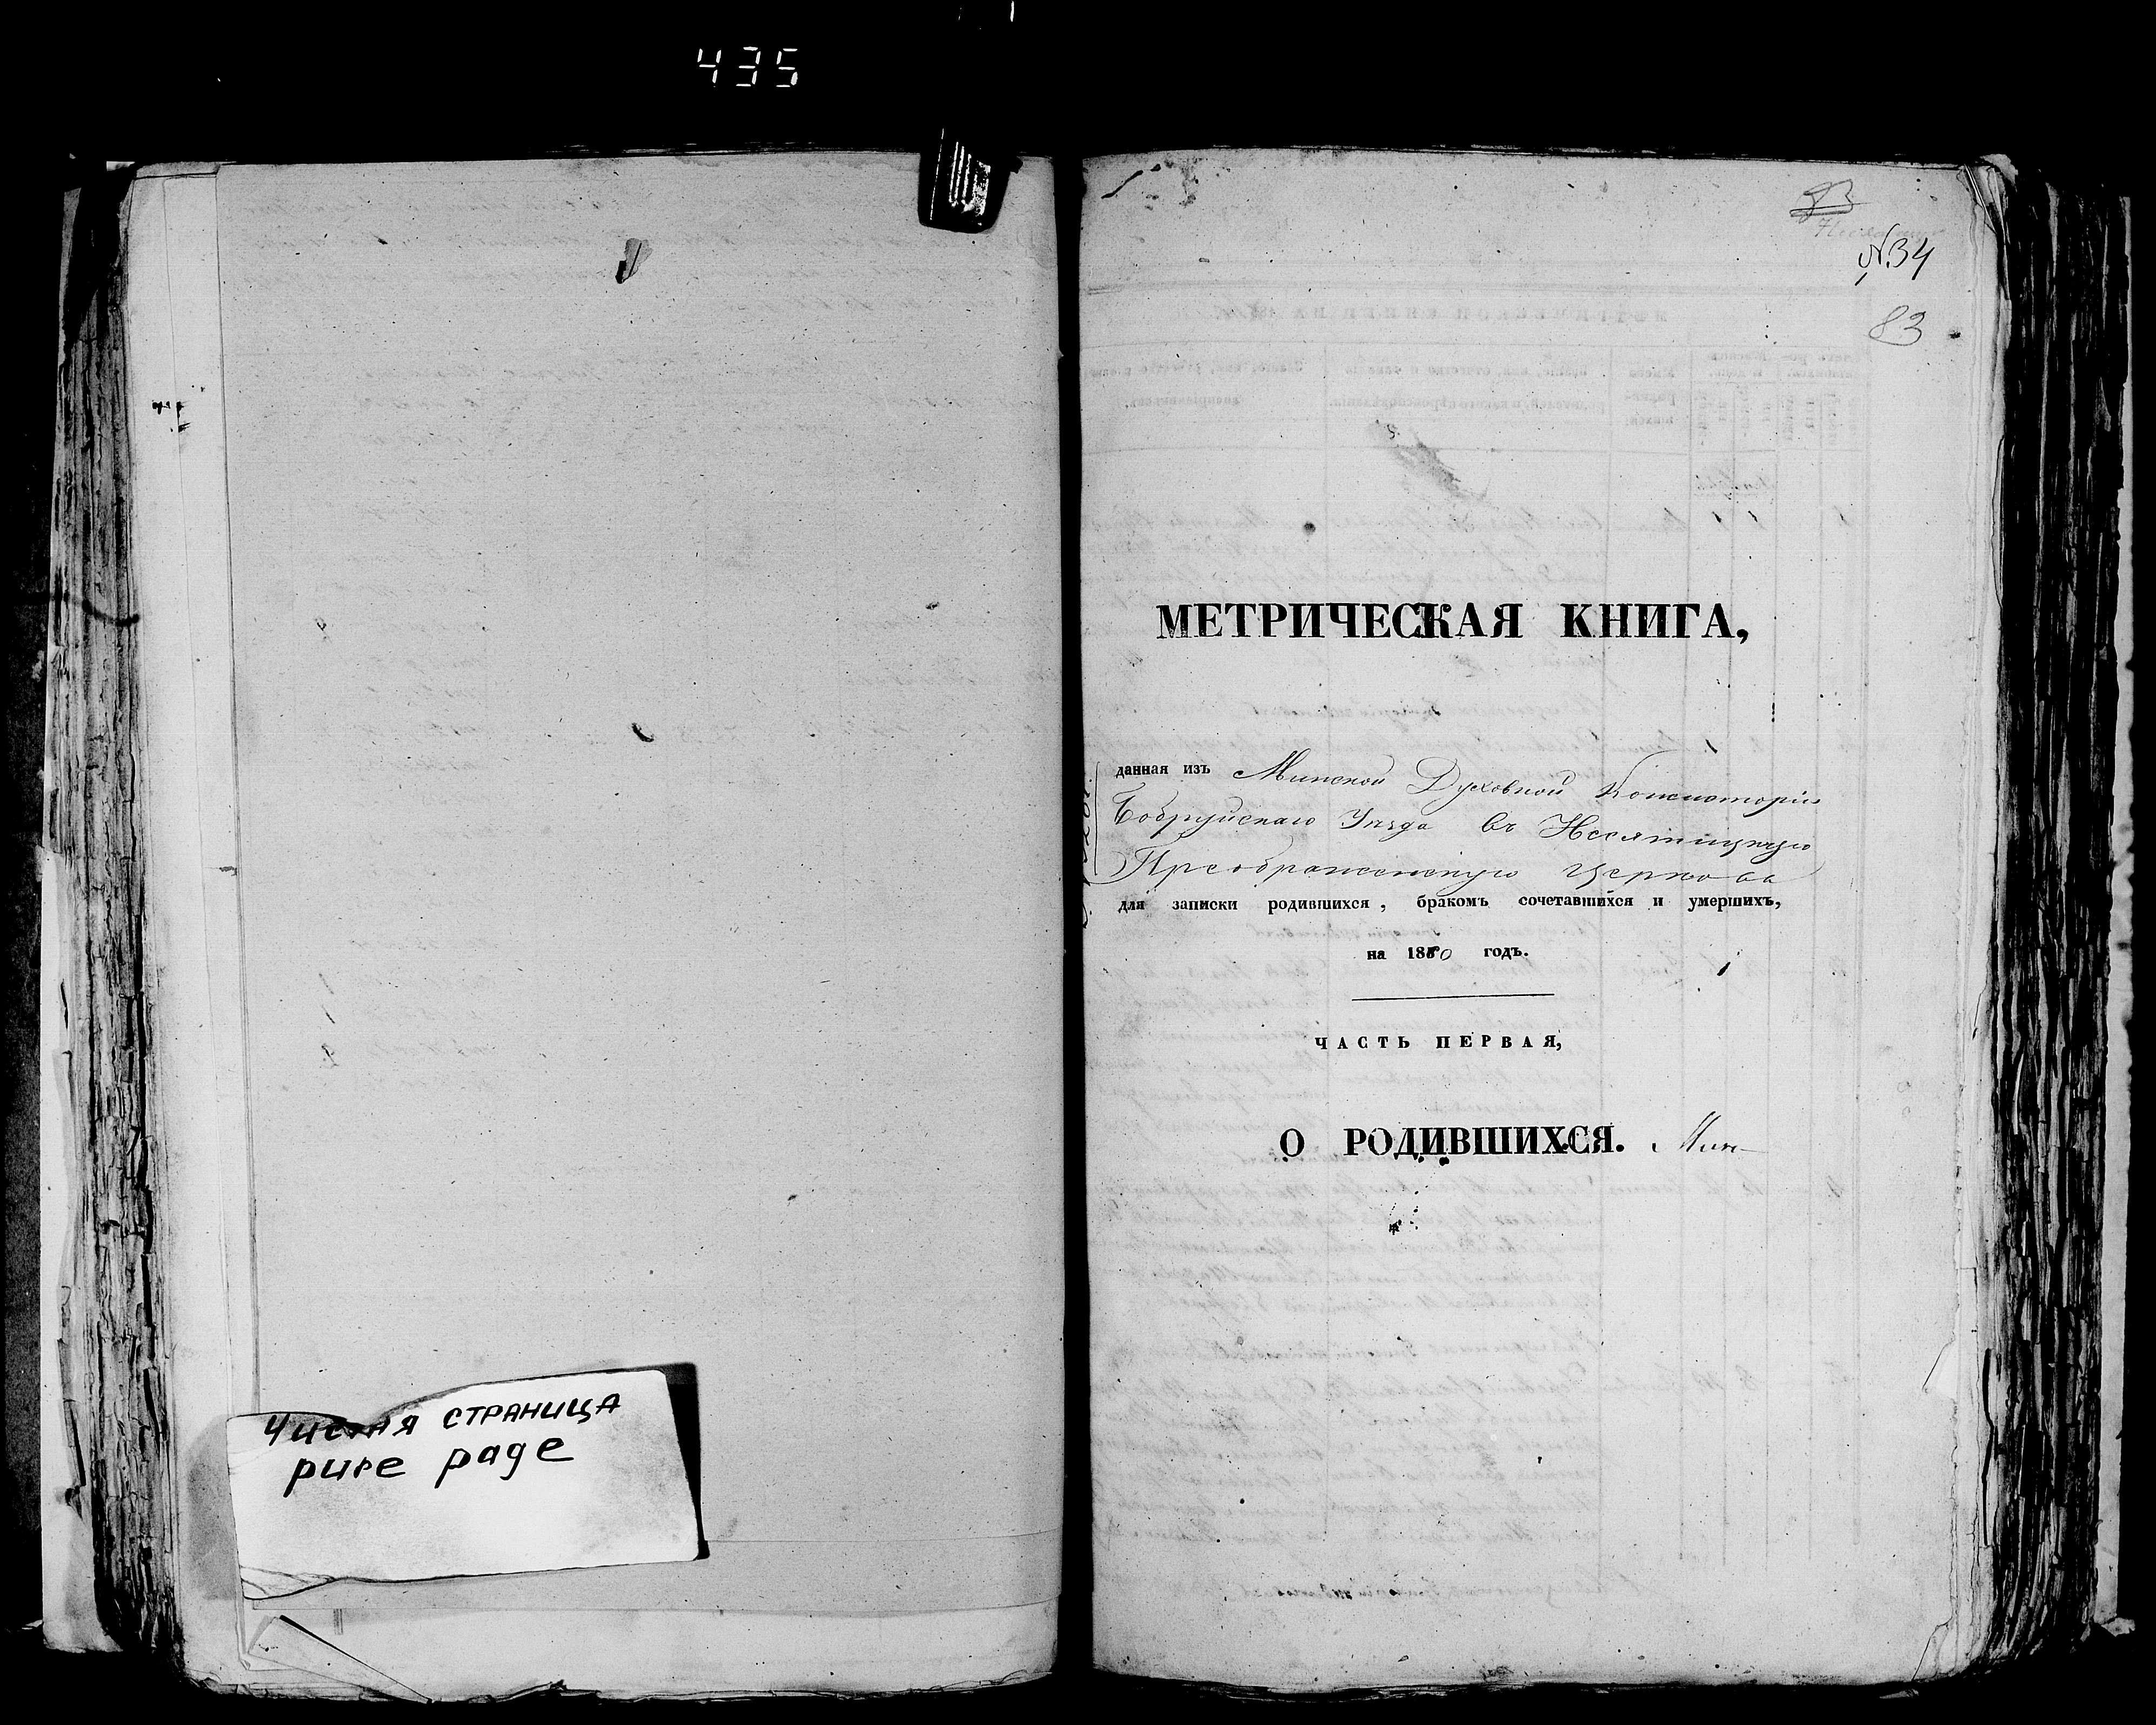 435
Чистая страница
pure page
83
№34
83
МЕТРИЧЕСКАЯ КНИГА,
данная изъ Минской Духовной Консисторіи
Бобруйскаго Уѣзда въ Несятицкую
Преображенскую церковь
для записки родившихся, бракомъ сочетавшихся и умершихъ,
на 1850 годъ.
ЧАСТЬ ПЕРВАЯ,
О РОДИВШИХСЯ. Мин-